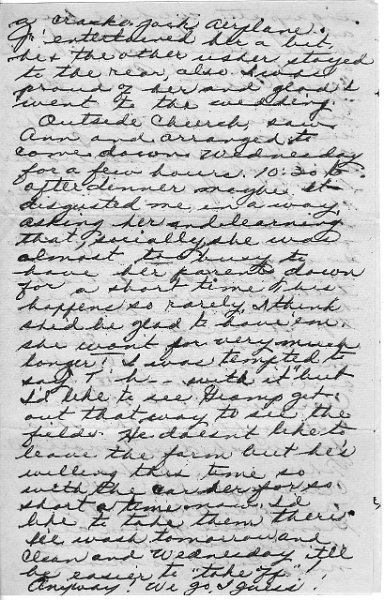 a cracka-jack airplane.
I entertained her a bit.
he & the other usher stayed
to the rear, also. I was
proud of her and glad I
went to the wedding.
Outside Church, saw
Ann and arranged to
come down Wednesday
for a few hours. 10:30 to
after dinner maybe. It
disgusted me in a way,
asking her and learning
that, socially she was
almost too busy to
have her parents down
for a short time, this
happens so rarely, I think
she'd be glad to have em.
she won't for very much
longer! I was tempted to
say T. h-- with it but
I'd like to see Gramp get
out that way to see the
fields. He doesn't like to
leave the farm but he's
willing this time so
with the car here for so
short a time now I'd
like to take them there.
I'll wash tomorrow and
clean and Wednesday it'll
be easier to "take off."
Anyway! We go, I guess!